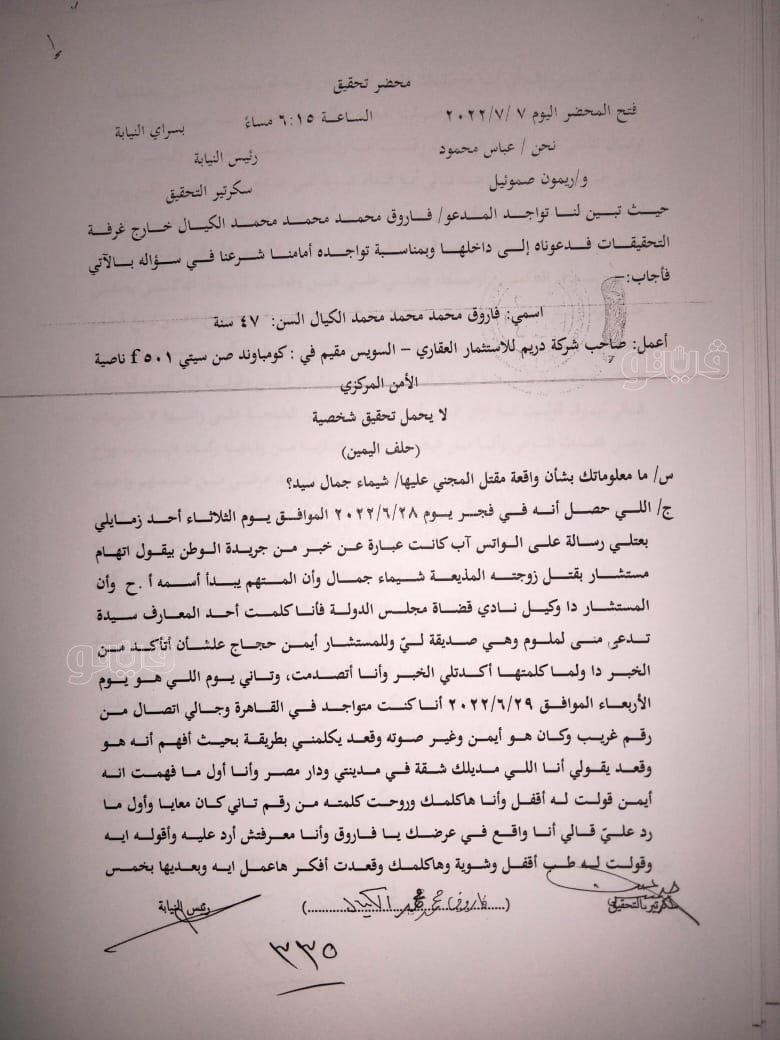 محضر تحقيق
فتح المحضر اليوم ٧ /٧/ ٢٠٢٢ الساعة ٦:١٥ مساءً بسراي النيابة
نحن / عباس محمود رئيس النيابة
و/ريمون صموئيل سكرتير التحقيق
حيث تبين لنا تواجد المدعو/ فاروق محمد محمد محمد الكيال خارج غرفة
التحقيقات فدعوناه إلى داخلها وبمناسبة تواجده أمامنا شرعنا في سؤاله بالآتي
فأجاب:–
اسمي: فاروق محمد محمد محمد الكيال السن: ٤٧ سنة
أعمل: صاحب شركة دريم للاستثمار العقاري – السويس مقيم في : كومباوند صن سيتي f ٥٠١ ناصية
الأمن المركزي
لا يحمل تحقيق شخصية
(حلف اليمين)
س/ ما معلوماتك بشأن واقعة مقتل المجني عليها/ شيماء جمال سيد؟
ج/ اللي حصل أنه في فجر يوم ٢٠٢٢/٦/٢٨ الموافق يوم الثلاثاء أحد زمايلي
بعتلي رسالة على الواتس آب كانت عبارة عن خبر من جريدة الوطن بيقول اتهام
مستشار بقتل زوجته المذيعة شيماء جمال وأن المتهم يبدأ أسمه أ.ح وأن
المستشار دا وكيل نادي قضاة مجلس الدولة فأنا كلمت أحد المعارف سيدة
تدعى منى لملوم وهي صديقة ليّ وللمستشار أيمن حجاج علشان أتأكد من
الخبر دا ولما كلمتها أكدتلي الخبر وأنا أتصدمت، وتاني يوم اللي هو يوم
الأربعاء الموافق ٢٠٢٢/٦/٢٩ أنا كنت متواجد في القاهرة وجالي اتصال من
رقم غريب وكان هو أيمن وغير صوته وقعد يكلمني بطريقة بحيث أفهم أنه هو
وقعد يقولي أنا اللي مديلك شقة في مدينتي ودار مصر وأنا أول ما فهمت انه
أيمن قولت له أقفل وأنا هاكلمك وروحت كلمته من رقم تاني كان معايا وأول ما
رد عليّ قالي أنا واقع في عرضك يا فاروق وأنا معرفتش أرد عليه وأقوله ايه
وقولت له طب أقفل وشوية وهاكلمك وقعدت أفكر هاعمل ايه وبعديها بخمس
سكرتير التحقيق (فاروق محمد محمد الكيال) رئيس النيابة
٣٣٥
فيتو
فيتو